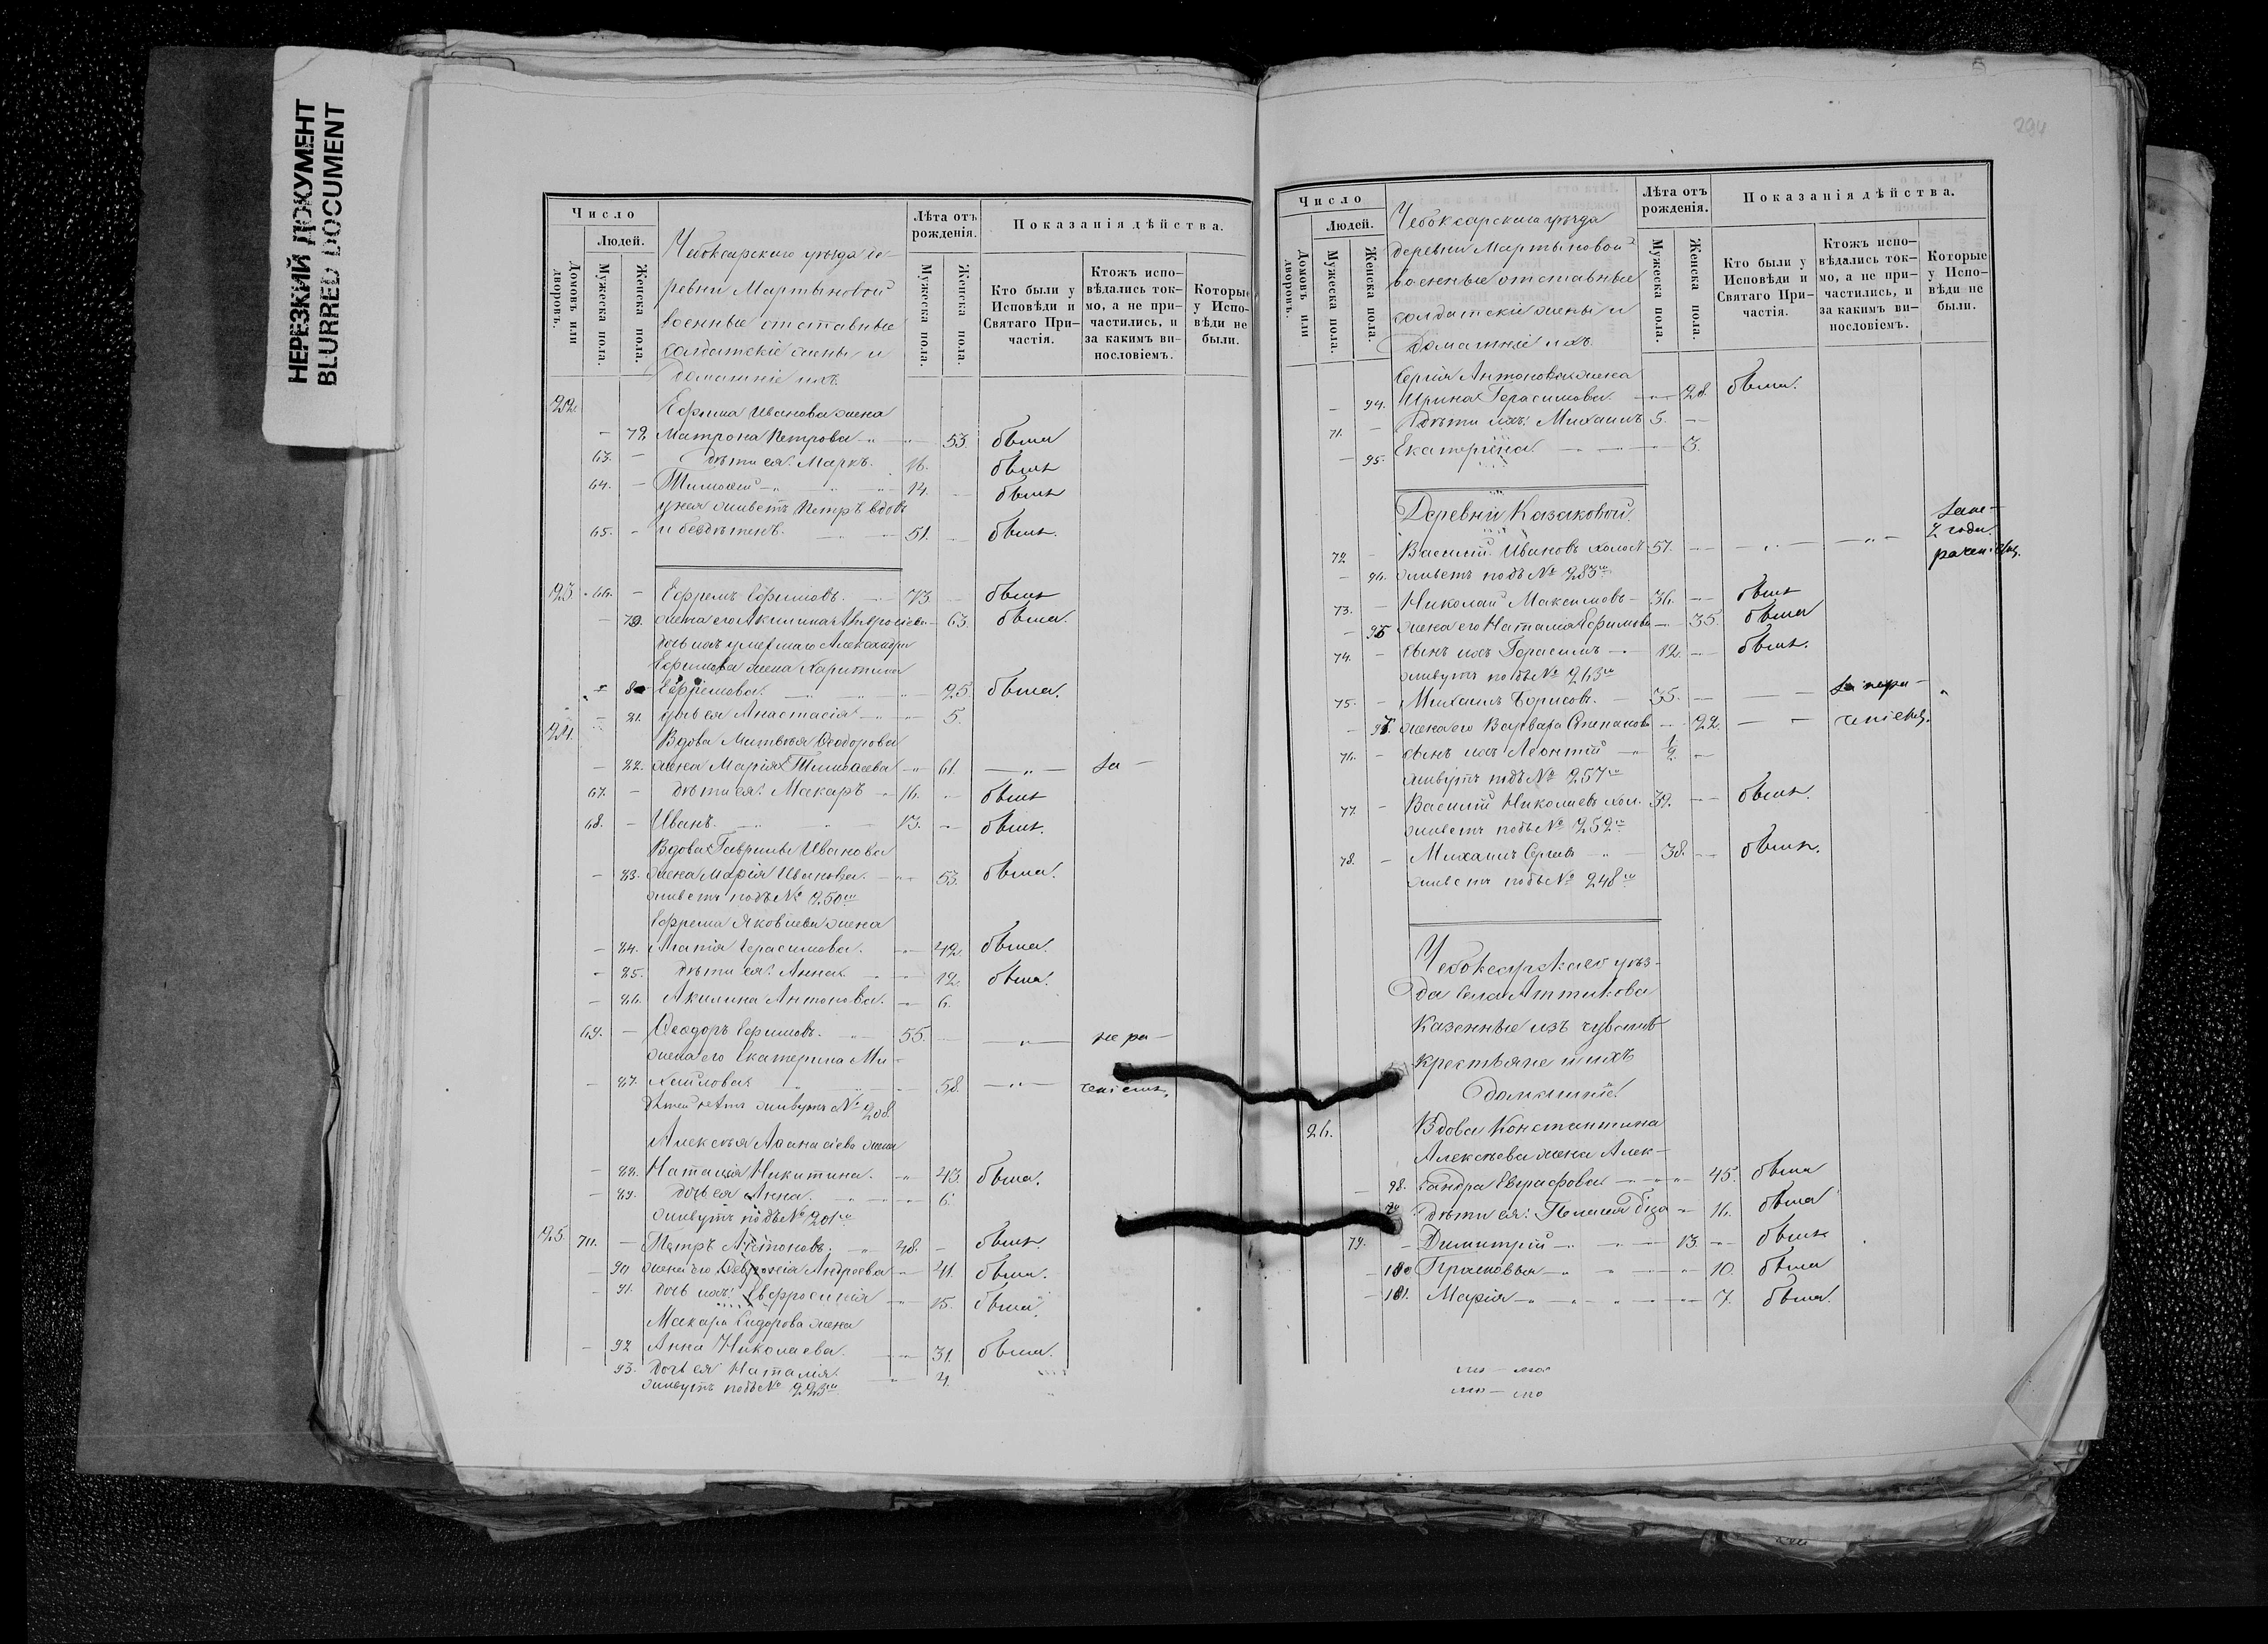 НЕРЕЗКИЙ ДОКУМЕНТ
BLURRED DOCUMENT
Число
Людей.
Домовъ или дворовъ.
Мужеска пола.
Женска пола.
Чебоксарскаго уѣзда де-
ревни Мартыновой
военные отставные
солдатскіе жены и
домашніе ихъ.
Лѣта отъ рожденія.
Мужеска пола.
Женска пола.
Показанія дѣйства.
Кто были у Исповѣди и Святаго При-частія.
Ктожъ испо-вѣдались ток-мо, а не при-частились, и за какимъ ви-нословіемъ.
Которые у Испо-вѣди не были.
22. Ефима Иванова жена
— 78 Матрона Петрова 53 была
63. — дѣти ея: Маркъ. 16. былъ
64. — Тимоѳей 14. былъ
у нея живетъ Петръ вдовъ
65. — и бездѣтенъ. 51. былъ.
23. 66. — Ефремъ Ефимовъ. 73 былъ
— 79. жена его Акилина 63. была.
умершаго Александра
Ефимова жена Харитина
— 80 Ефремова. 25. была.
— 81. дочь ея Анастасія 5.
24. Вдова Матвѣя Ѳеодорова
— 82. жена Марія Тимоѳеева 61. — „ — за —
67. — дѣти ея: Макаръ 16. былъ
68. — Иванъ. 13. былъ.
Вдова Гавриила Иванова
— 83. жена Марія Иванова. 53. была.
живетъ подъ № 250
Ефрема Яковлева жена
— 84. Агапія Герасимова. 42. была.
— 85. дѣти ея: Анна 12. была.
— 86. Акилина Антонова. 6.
69. — Ѳеодоръ Ефимовъ. 55. — „ — не ра—
жена его Екатерина Ми-
— 87. хайлова 58. — „ — ченіемъ.
дѣтей нѣтъ живутъ № 208
Алексѣя Аѳанасіева жена
— 88. Наталія Никитина. 43. была.
— 89. дочь ея Анна. 6.
живутъ подъ № 201
25. 70. — Петръ Антоновъ. 48. былъ.
— 90 жена его Ѳевронія Андреева 41. была.
— 91. дочь ихъ: Евфросинія 15. была.
Макара Сидорова жена
— 92 Анна Николаева. 31. была.
93. дочь ея Наталія. 4.
живутъ подъ № 223
294
Число
Людей.
Домовъ или дворовъ.
Мужеска пола.
Женска пола.
Чебоксарскаго уѣзда
деревни Мартыновой
военные отставные
солдатскіе жены и
домашніе ихъ.
Лѣта отъ рожденія.
Мужеска пола.
Женска пола.
Показанія дѣйства.
Кто были у Исповѣди и Святаго При-частія.
Ктожъ испо-вѣдались ток-мо, а не при-частились, и за какимъ ви-нословіемъ.
Которые у Испо-вѣди не были.
Сергія Антонова жена
— 94. Ирина Герасимова. 28. была.
71. — дѣти ихъ: Михаилъ 5.
— 95. Екатерина 3.
Деревни Казаковой.
72 — Василій Ивановъ холост 57. — „ —
— 96. живетъ подъ № 285
73. — Николай Максимовъ 36. былъ
жена его Наталія Ефимова 35. была
74. — сынъ ихъ Герасимъ 12. былъ.
живутъ подъ № 263
75. — Михаилъ Борисовъ. 35. — за нера—
жена его Варвара Степанова 22. — ченіемъ.
76. — сынъ ихъ Леонтій 1/2
живутъ подъ № 257
77. — Василій Николаевъ хол. 39. былъ.
живетъ подъ № 252
78. — Михаилъ Сергѣевъ 38. былъ.
живетъ подъ № 248
Чебоксарскаго уѣз-
да села
казенные изъ чувашъ
крестьяне и ихъ
домашніе.
26. Вдова Константина
Алексѣева жена Алек-
— 98. сандра Евграфова 45. была
дѣти ея: Пелагея дѣва 16. была
79. — Димитрій 13. былъ
— 100 Прасковья 10. была
— 101. Марія 7. была.